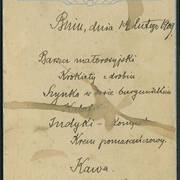 dnia 12 lutego 1909.
Barszcz małorosyjski
Krokiety z drobiu
Szynka w sosie burgundzkim
Indyki - Kompot
Krem pomarańczowy.
Kawa.